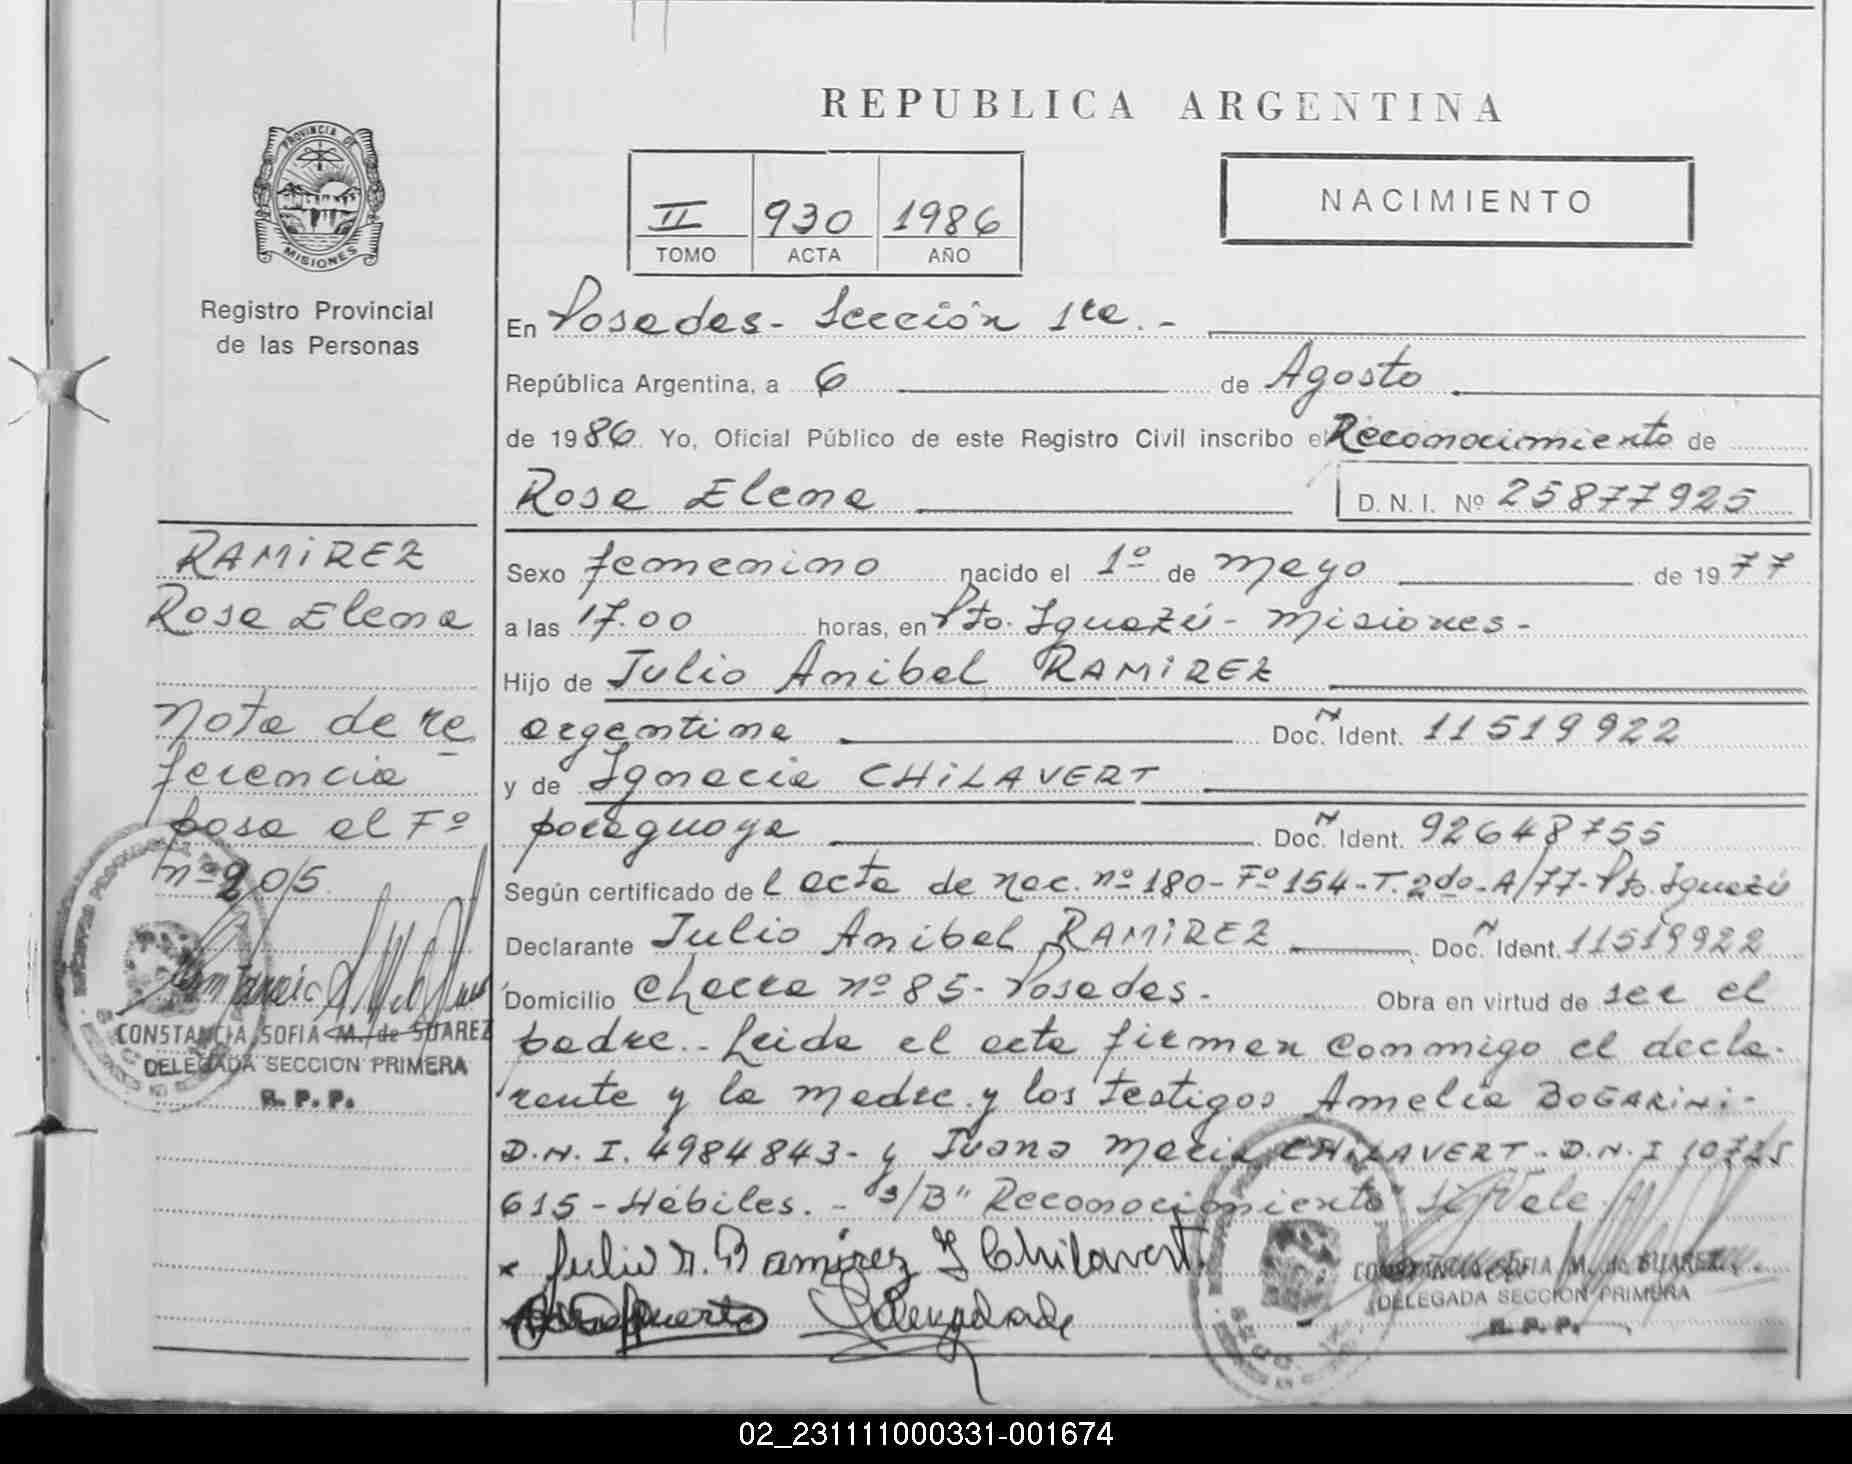 REPUBLICA ARGENTINA
PROVINCIA DE
MISIONES
II 930 1986
TOMO ACTA AÑO
NACIMIENTO
Registro Provincial
de las Personas
En Posadas - Sección 1ra. -
República Argentina, a 6 de Agosto
de 1986 Yo, Oficial Público de este Registro Civil inscribo el Reconocimiento de
Rosa Elena D. N. I. Nº 25877925
RAMIREZ
Rosa Elena
Nota de re
ferencia
pasa al Fº
nº 205
CONSTANCIA SOFIA M. de SUAREZ
DELEGADA SECCION PRIMERA
R. P. P.
Sexo femenino nacido el 1º de mayo de 1977
a las 17.00 horas, en Pto. Iguazú - Misiones -
Hijo de Julio Anibal RAMIREZ
argentina Doc. N Ident. 11519922
y de Ignacia CHILAVERT
paraguaya Doc. N Ident. 92648755
Según certificado de l acta de nac. nº 180 - Fº 154 - T. 2do - A/77 - Pto. Iguazú
Declarante Julio Anibal RAMIREZ Doc. N Ident. 11519922
Domicilio Chacra nº 85 - Posadas - Obra en virtud de ser el
padre. - Leida el acta firman conmigo el decla-
rante y la madre y los testigos Amelia BOGARINI -
D.N.I. 4984843 - y Juana Maria CHILAVERT - D.N.I 10775
615 - Hábiles. - "s/B" Reconocimiento" Si Vale.
x Julio A. Ramirez I Chilavert
CONSTANCIA SOFIA M. de SUAREZ
DELEGADA SECCION PRIMERA
R. P. P.
02_231111000331-001674